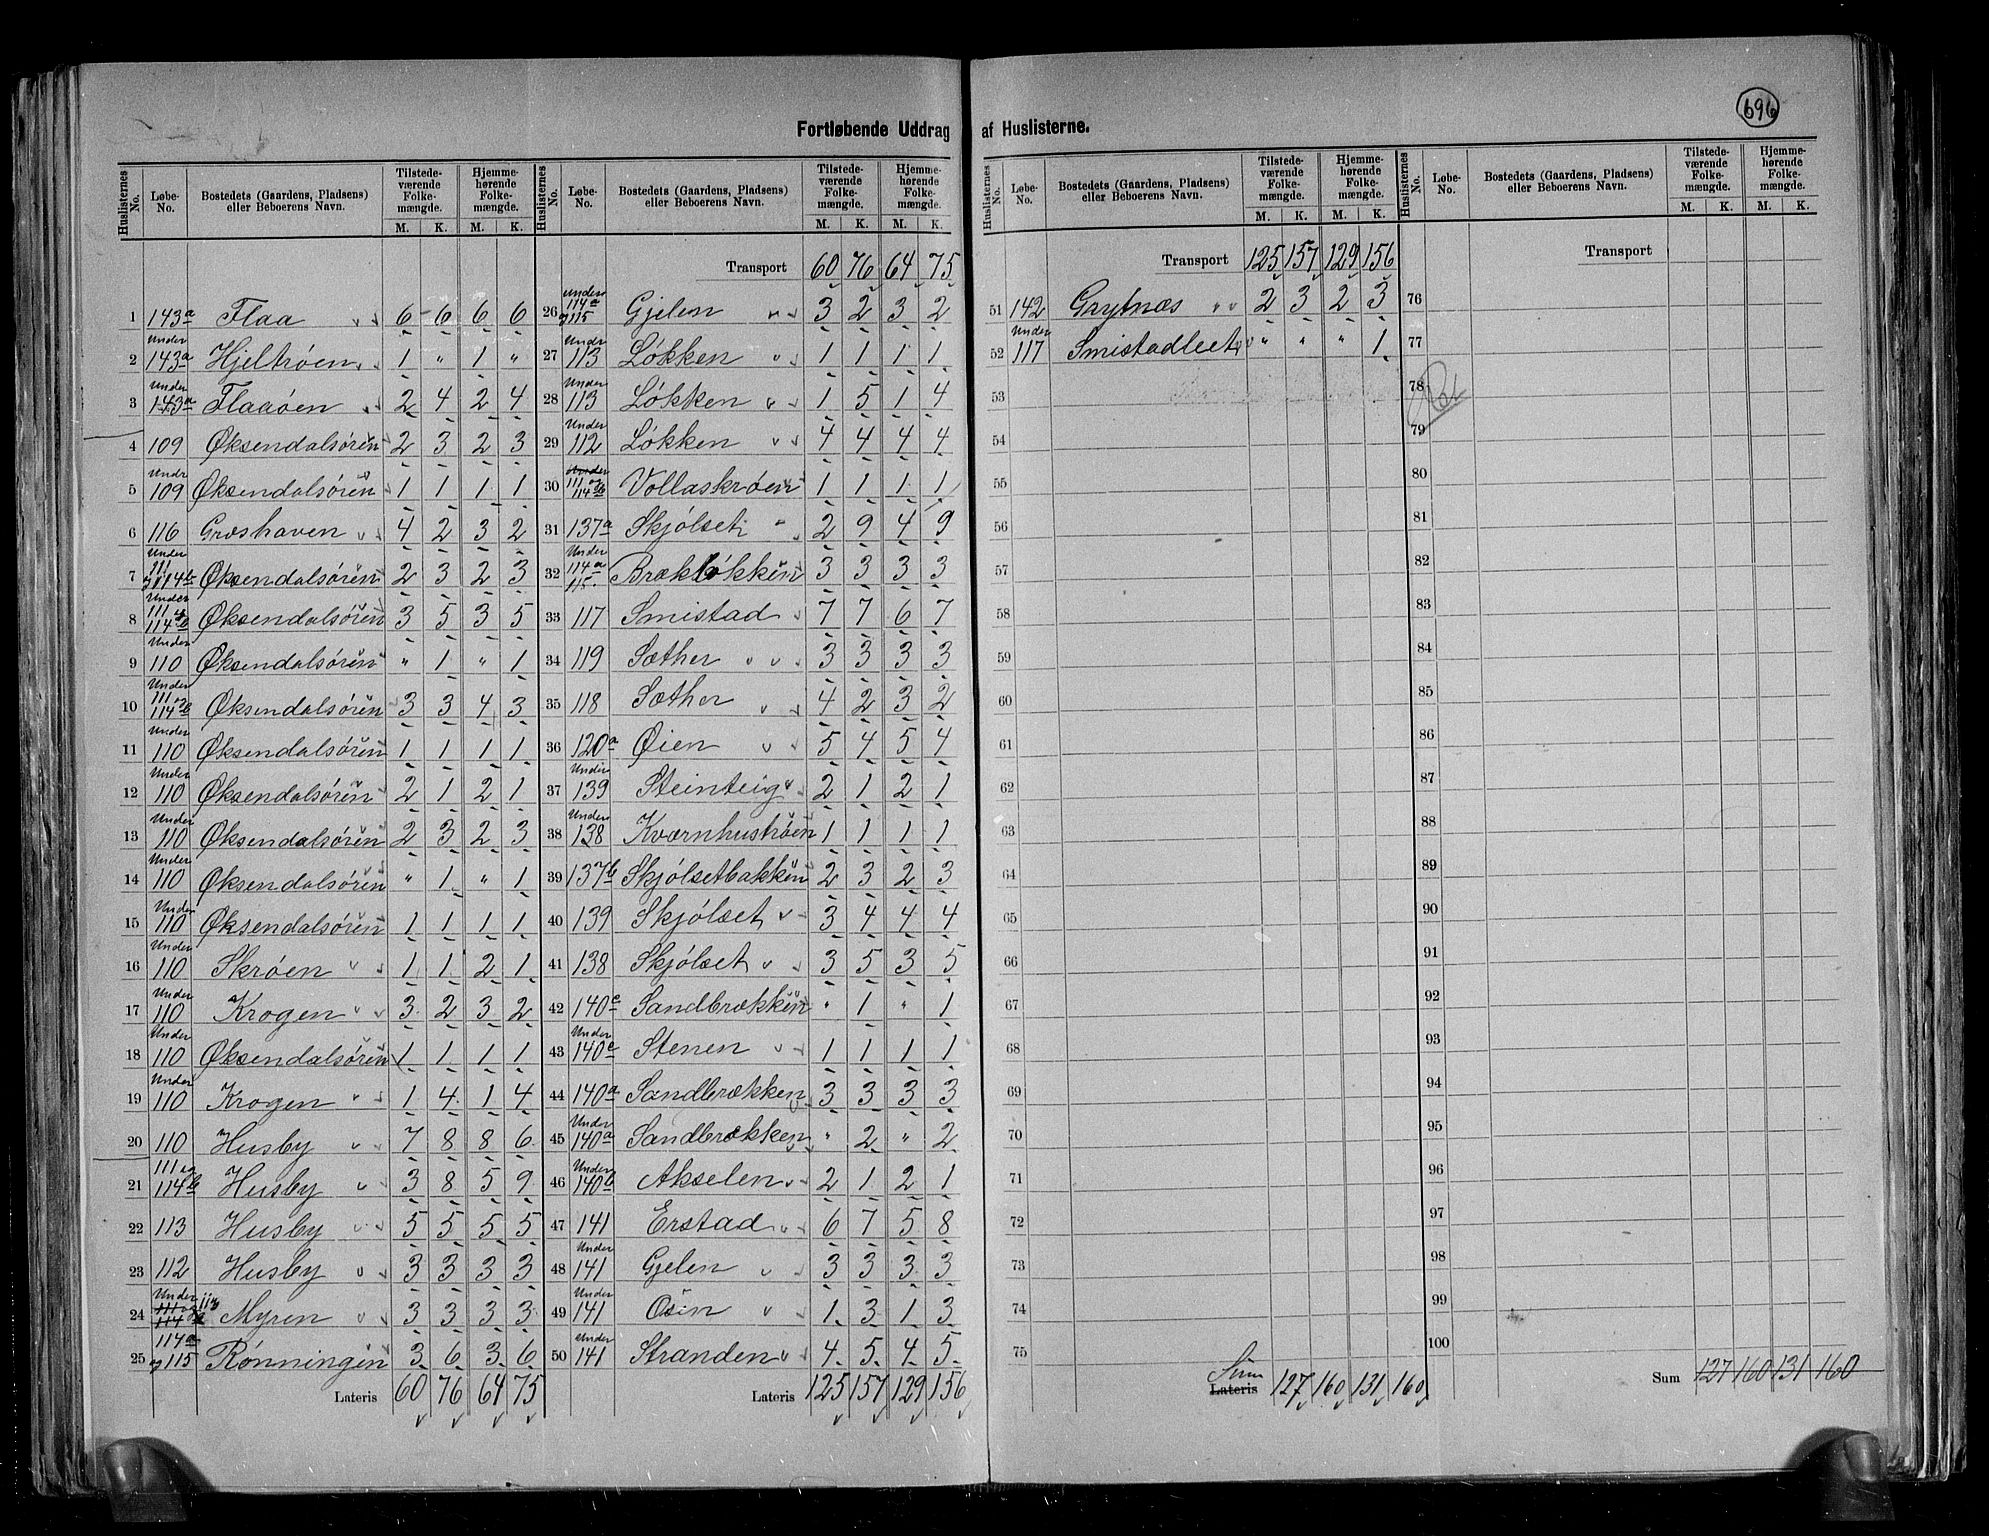 696
Fortløbende Uddrag af Huslisterne.
Huslisternes No. | Løbe-No. | Bostedets (Gaardens, Pladsens) eller Beboerens Navn. | Tilstedeværende Folkemængde. M. K. | Hjemmehørende Folkemængde. M. K.
1 143a Flaa 6 6 6 6
2 Under 143a Hjeltrøen 1 " 1 "
3 Under 143a Flaaøen 2 4 2 4
4 109 Øksendalsøren 2 3 2 3
5 Undr 109 Øksendalsøren 1 1 1 1
6 116 Græshaven 4 2 3 2
7 Under 111 og 114b Øksendalsøren 2 3 2 3
8 Under 111 og 114b Øksendalsøren 3 5 3 5
9 Under 110 Øksendalsøren " 1 " 1
10 Under 111 og 114b Øksendalsøren 3 3 4 3
11 Under 110 Øksendalsøren 1 1 1 1
12 Under 110 Øksendalsøren 2 1 2 1
13 Under 110 Øksendalsøren 2 3 2 3
14 Under 110 Øksendalsøren " 1 " 1
15 Under 110 Øksendalsøren 1 1 1 1
16 Under 110 Skrøen 1 1 2 1
17 Under 110 Krogen 3 2 3 2
18 Under 110 Øksendalsøren 1 1 1 1
19 Under 110 Krogen 1 4 1 4
20 110 Husby 7 8 8 6
21 111 og 114b Husby 3 8 5 9
22 113 Husby 5 5 5 5
23 112 Husby 3 3 3 3
24 Under 113 Myren 3 3 3 3
25 114a og 115 Rønningen 3 6 3 6
Lateris 60 76 64 75
Huslisternes No. | Løbe-No. | Bostedets (Gaardens, Pladsens) eller Beboerens Navn. | Tilstedeværende Folkemængde. M. K. | Hjemmehørende Folkemængde. M. K.
Transport 60 76 64 75
26 Under 114a og 115 Gjelen 3 2 3 2
27 Undr 113 Løkken 1 1 1 1
28 Under 113 Løkken 1 5 1 4
29 Under 112 Løkken 4 4 4 4
30 Under 111 og 114b Vollaskrøen 1 1 1 1
31 137a Skjølset 2 9 4 9
32 Under 114a 115 Brækløkken 3 3 3 3
33 117 Smistad 7 7 6 7
34 119 Sæther 3 3 3 3
35 118 Sæther 4 2 3 2
36 120a Øien 5 4 5 4
37 Under 139 Steinteig 2 1 2 1
38 Under 138 Kværnhustrøen 1 1 1 1
39 137b Skjølsetbakken 2 3 2 3
40 139 Skjølset 3 4 4 4
41 138 Skjølset 3 5 3 5
42 140c Sandbrækken " 1 " 1
43 Under 140c Stenen 1 1 1 1
44 140a Sandbrækken 3 3 3 3
45 Under 140a Sandbrækken " 2 " 2
46 Under 140b Akselen 2 1 2 1
47 141 Erstad 6 7 5 8
48 Under 141 Gjelen 3 3 3 3
49 Under 141 Osen 1 3 1 3
50 Under 141 Stranden 4 5 4 5
Lateris 125 157 129 156
Huslisternes No. | Løbe-No. | Bostedets (Gaardens, Pladsens) eller Beboerens Navn. | Tilstedeværende Folkemængde. M. K. | Hjemmehørende Folkemængde. M. K.
Transport 125 157 129 156
51 142 Grytnæs 2 3 2 3
52 Under 117 Smistadleet " " " 1
53
54
55
56
57
58
59
60
61
62
63
64
65
66
67
68
69
70
71
72
73
74
75
Sum
Lateris 127 160 131 160
Huslisternes No. | Løbe-No. | Bostedets (Gaardens, Pladsens) eller Beboerens Navn. | Tilstedeværende Folkemængde. M. K. | Hjemmehørende Folkemængde. M. K.
Transport
76
77
78
79
80
81
82
83
84
85
86
87
88
89
90
91
92
93
94
95
96
97
98
99
100
Sum 127 160 131 160